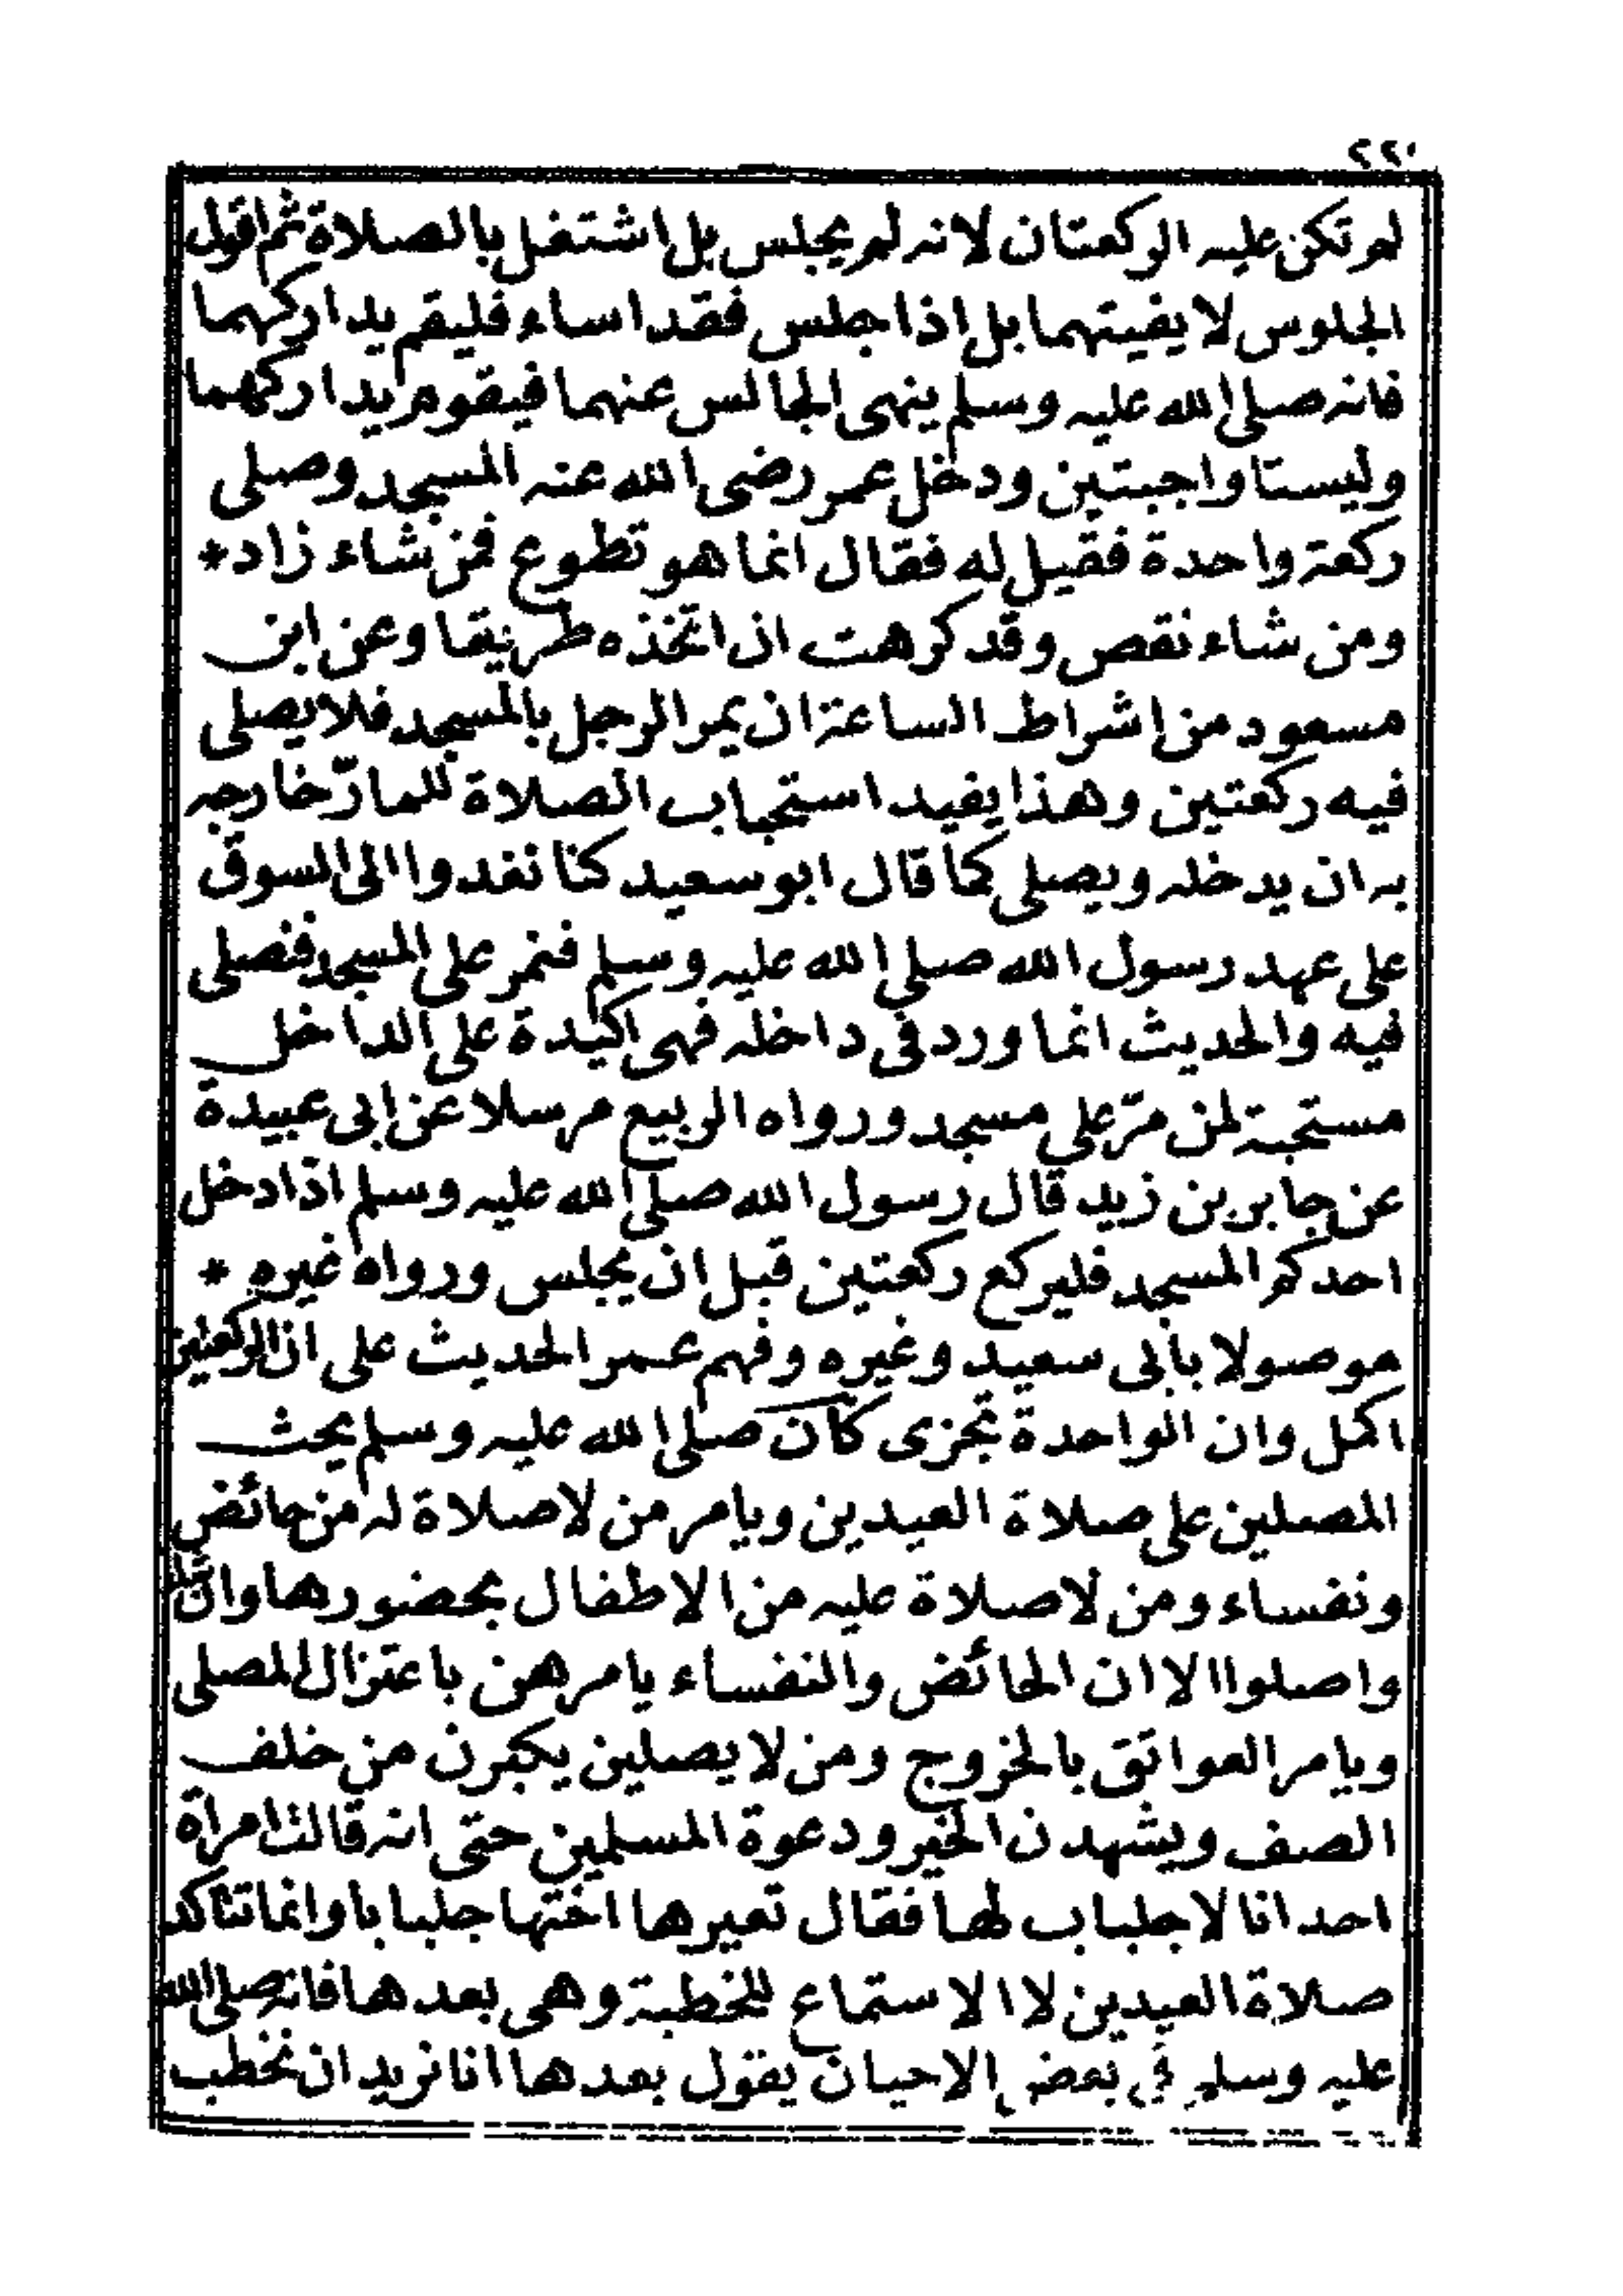 ٢٢٠
لم تكن عليه الركعتان لانه لم يجلس بل اشتغل بالصلاة ثم اقول
الجلوس لا يفيتهما بل اذا جلس فقد اساء فليقم يداركهما
فانه صلى الله عليه وسلم ينهى الجالس عنهما فيقوم يداركهما
وليستا واجبتين ودخل عمر رضى الله عنه المسجد وصلى
ركعة واحدة فقيل له فقال انما هو تطوع فمن شاء زاد *
ومن شاء نقص وقد كرهت ان اتخذه طريقا وعن ابن
مسعود من اشراط الساعة ان يمر الرجل بالمسجد فلا يصلى
فيه ركعتين وهذا يفيد استحباب الصلاة للمارّ خارجه
به ان يدخله ويصلى كما قال ابو سعيد كنا نغدوا الى السوق
على عهد رسول الله صلى الله عليه وسلم فنمر على المسجد فنصلى
فيه والحديث انما ورد فى داخله فهى اكيدة على الداخل
مستحبة لمن مرّ على مسجد ورواه الربيع مرسلا عن ابى عبيدة
عن جابر بن زيد قال رسول الله صلى الله عليه وسلم اذا دخل
احدكم المسجد فليركع ركعتين قبل ان يجلس ورواه غيره *
موصولا بابى سعيد وغيره وفهم عمر الحديث على ان الركعتين
اكمل وان الواحدة تجزى كان صلى الله عليه وسلم يحث
المصلين على صلاة العيدين ويامر من لا صلاة له من حائض
ونفساء ومن لا صلاة عليه من الاطفال بحضورها وان
واصلوا الا ان الحائض والنفساء يامرهن باعتزال المصلى
ويامر العواتق بالخروج ومن لا يصلين يكبرن من خلف
الصف ويشهدن الخير ودعوة المسلمين حتى انه قالت امراة
احدانا لا جلباب لها فقال تعيرها اختها جلبابا وانما تتاكد
صلاة العيدين لا الاستماع للخطبة وهى بعدها فانه صلى الله
عليه وسلم فى بعض الاحيان يقول بعدها انا نريد ان نخطب